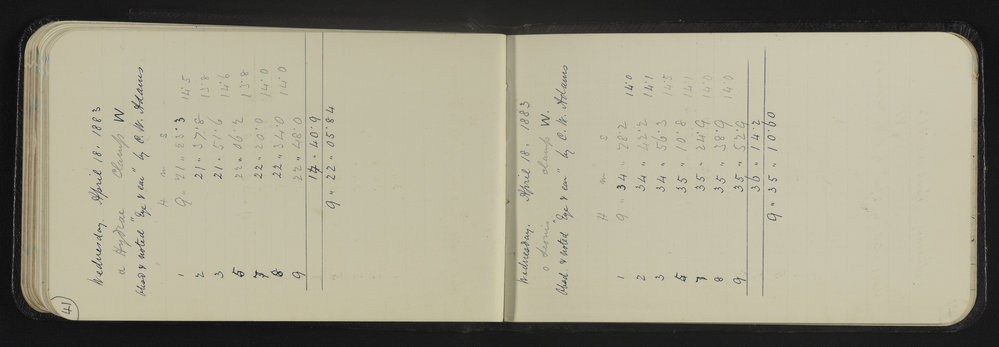 41
Wednesday. April 18. 1883
α Hydrae Clamp W
Obsd & noted "Eye & ear" by C. W. Adams
H m s
1 9 " 21 " 23.3 14.5
2 21 " 37.8 13.8
3 21 " 51.6 14.6
5 22 " 06.2 13.8
7 22 " 20.0 14.0
8 22 " 34.0 14.0
9 22 " 48.0
14 " 40.9
9 " 22 " 05.84
Wednesday. April 18. 1883
o Leonis Clamp W.
Obsd. & noted "Eye & ear" by C. W. Adams
H m s
1 9 " 34 " 28.2 14.0
2 34 " 42.2 14.1
3 34 " 56.3 14.5
5 35 " 10.8 14.1
7 35 " 24.9 14.0
8 35 " 38.9 14.0
9 35 " 52.9
36 " 14.2
9 " 35 " 10.60